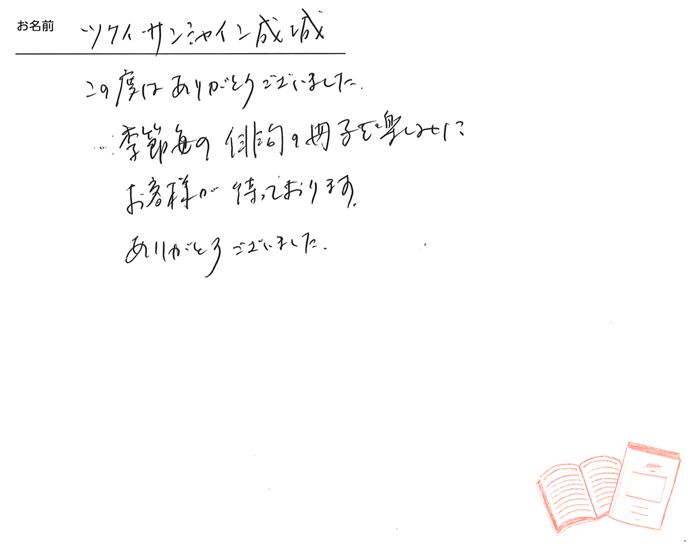 お名前 ツクイ・サンシャイン成城
この度はありがとうございました.
季節毎の俳句の冊子を楽しみに
お客様が待っております.
ありがとうございました.